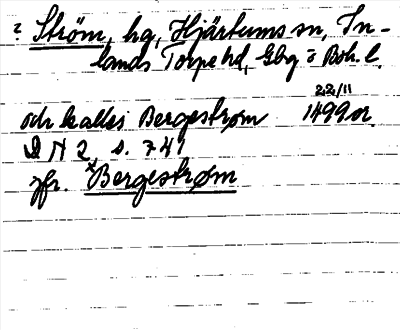 ? Ström, hg, Hjärtums sn, In-
lands Torpe hd, Gbg o Boh. l.
22/11
och kalles Bergestrøm 1499 or.
D N 2, s. 741
jfr. *Bergestrøm